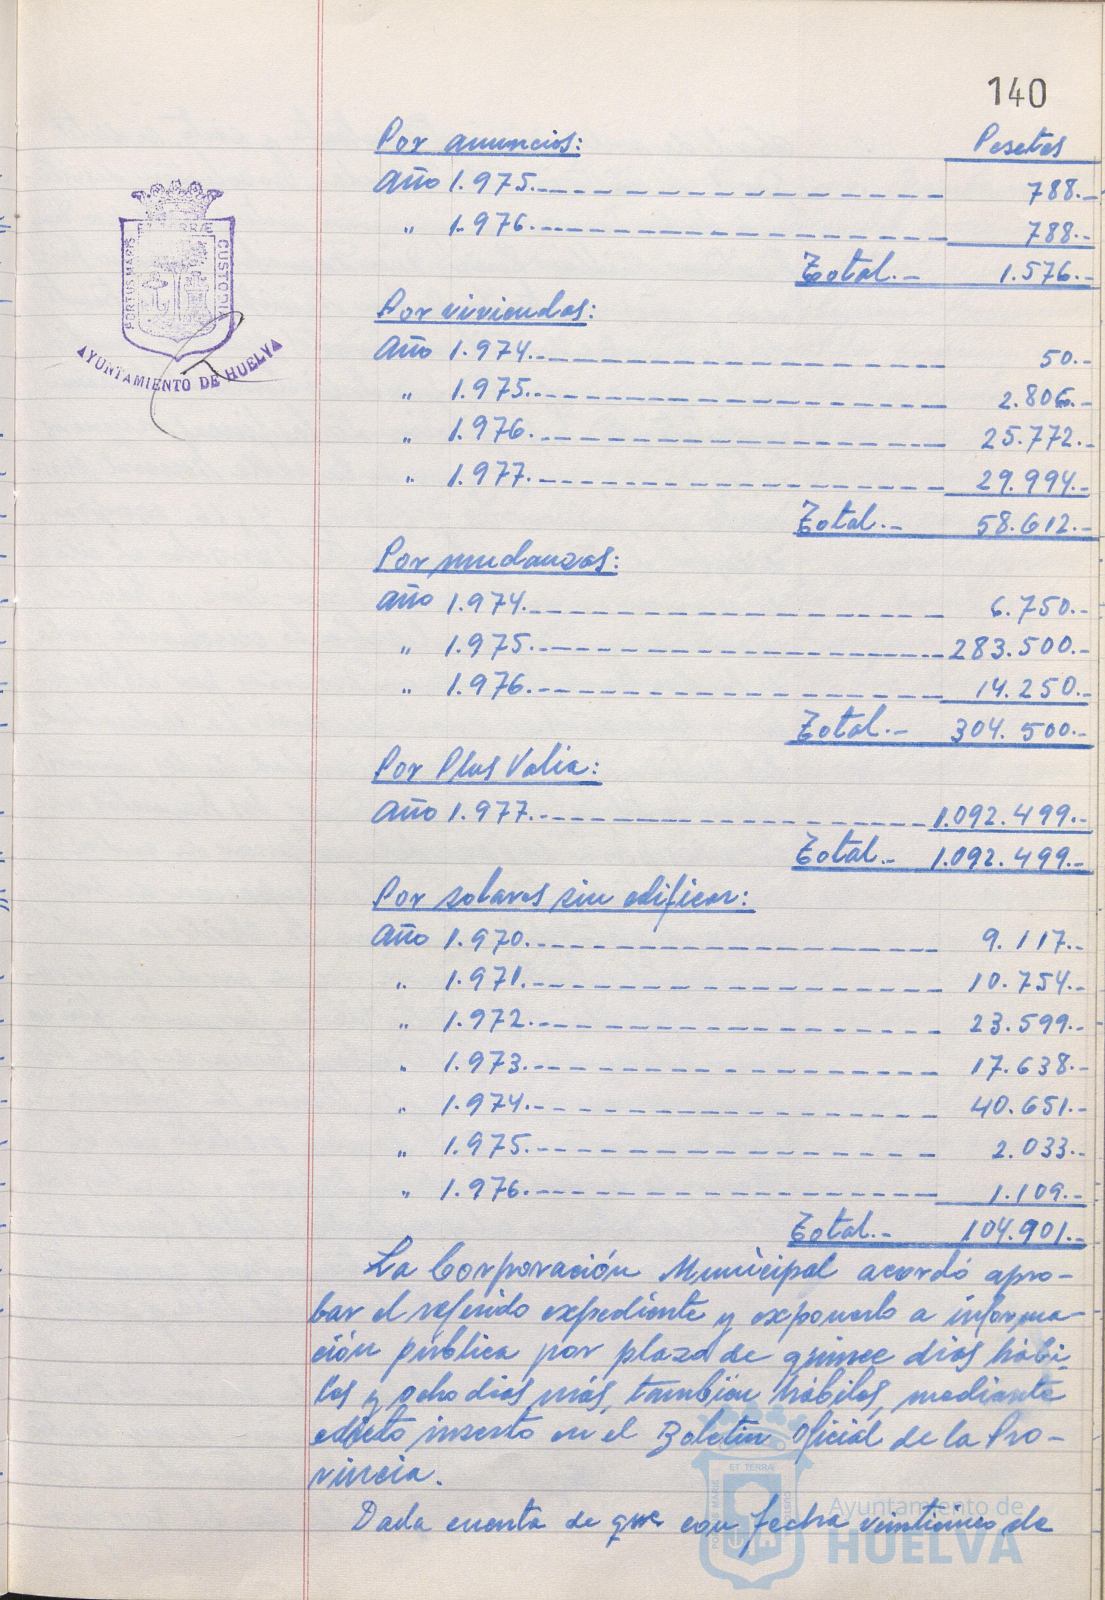 140
Por anuncios: Pesetas
Año 1.975.- 788.-
" 1.976.- 788.-
Total.- 1.576.-
Por viviendas:
Año 1.974.- 50.-
" 1.975.- 2.806.-
" 1.976.- 25.772.-
" 1.977.- 29.994.-
Total.- 58.612.-
Por mudanzas:
Año 1.974.- 6.750.-
" 1.975.- 283.500.-
" 1.976.- 14.250.-
Total.- 304.500.-
Por Plus Valia:
Año 1.977.- 1.092.499.-
Total.- 1.092.499.-
Por solares sin edificar:
Año 1.970.- 9.117.-
" 1.971.- 10.754.-
" 1.972.- 23.599.-
" 1.973.- 17.638.-
" 1.974.- 40.651.-
" 1.975.- 2.033.-
" 1.976.- 1.109.-
Total.- 104.901.-
La Corporación Municipal acordó apro-
bar el referido expediente y exponerlo a informa-
ción pública por plazo de quince dias hábi-
les y ocho dias más, también hábiles, mediante
edicto inserto en el Boletin Oficial de la Pro-
vincia.
Dada cuenta de que con fecha veinticinco de
PORTUS MARIS
ET TERRÆ
CUSTODIA
AYUNTAMIENTO DE HUELVA
PORTUS MARIS
ET TERRÆ
CUSTODIA
Ayuntamiento de
HUELVA